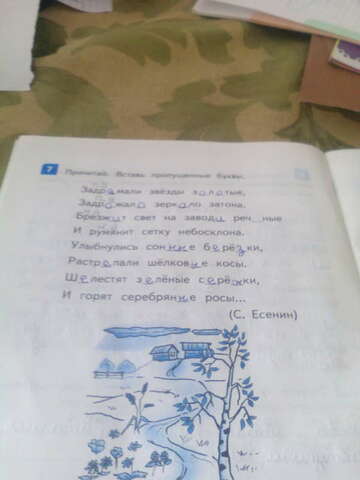 7 Прочитай. Вставь пропущенные буквы.
Задремали звёзды золотые,
Задрожало зеркало затона.
Брезжит свет на заводи реч_ные
И румянит сетку небосклона.
Улыбнулись сонные берёзки,
Растрепали шёлковые косы.
Шелестят зелёные серёжки,
И горят серебряные росы...
(С. Есенин)